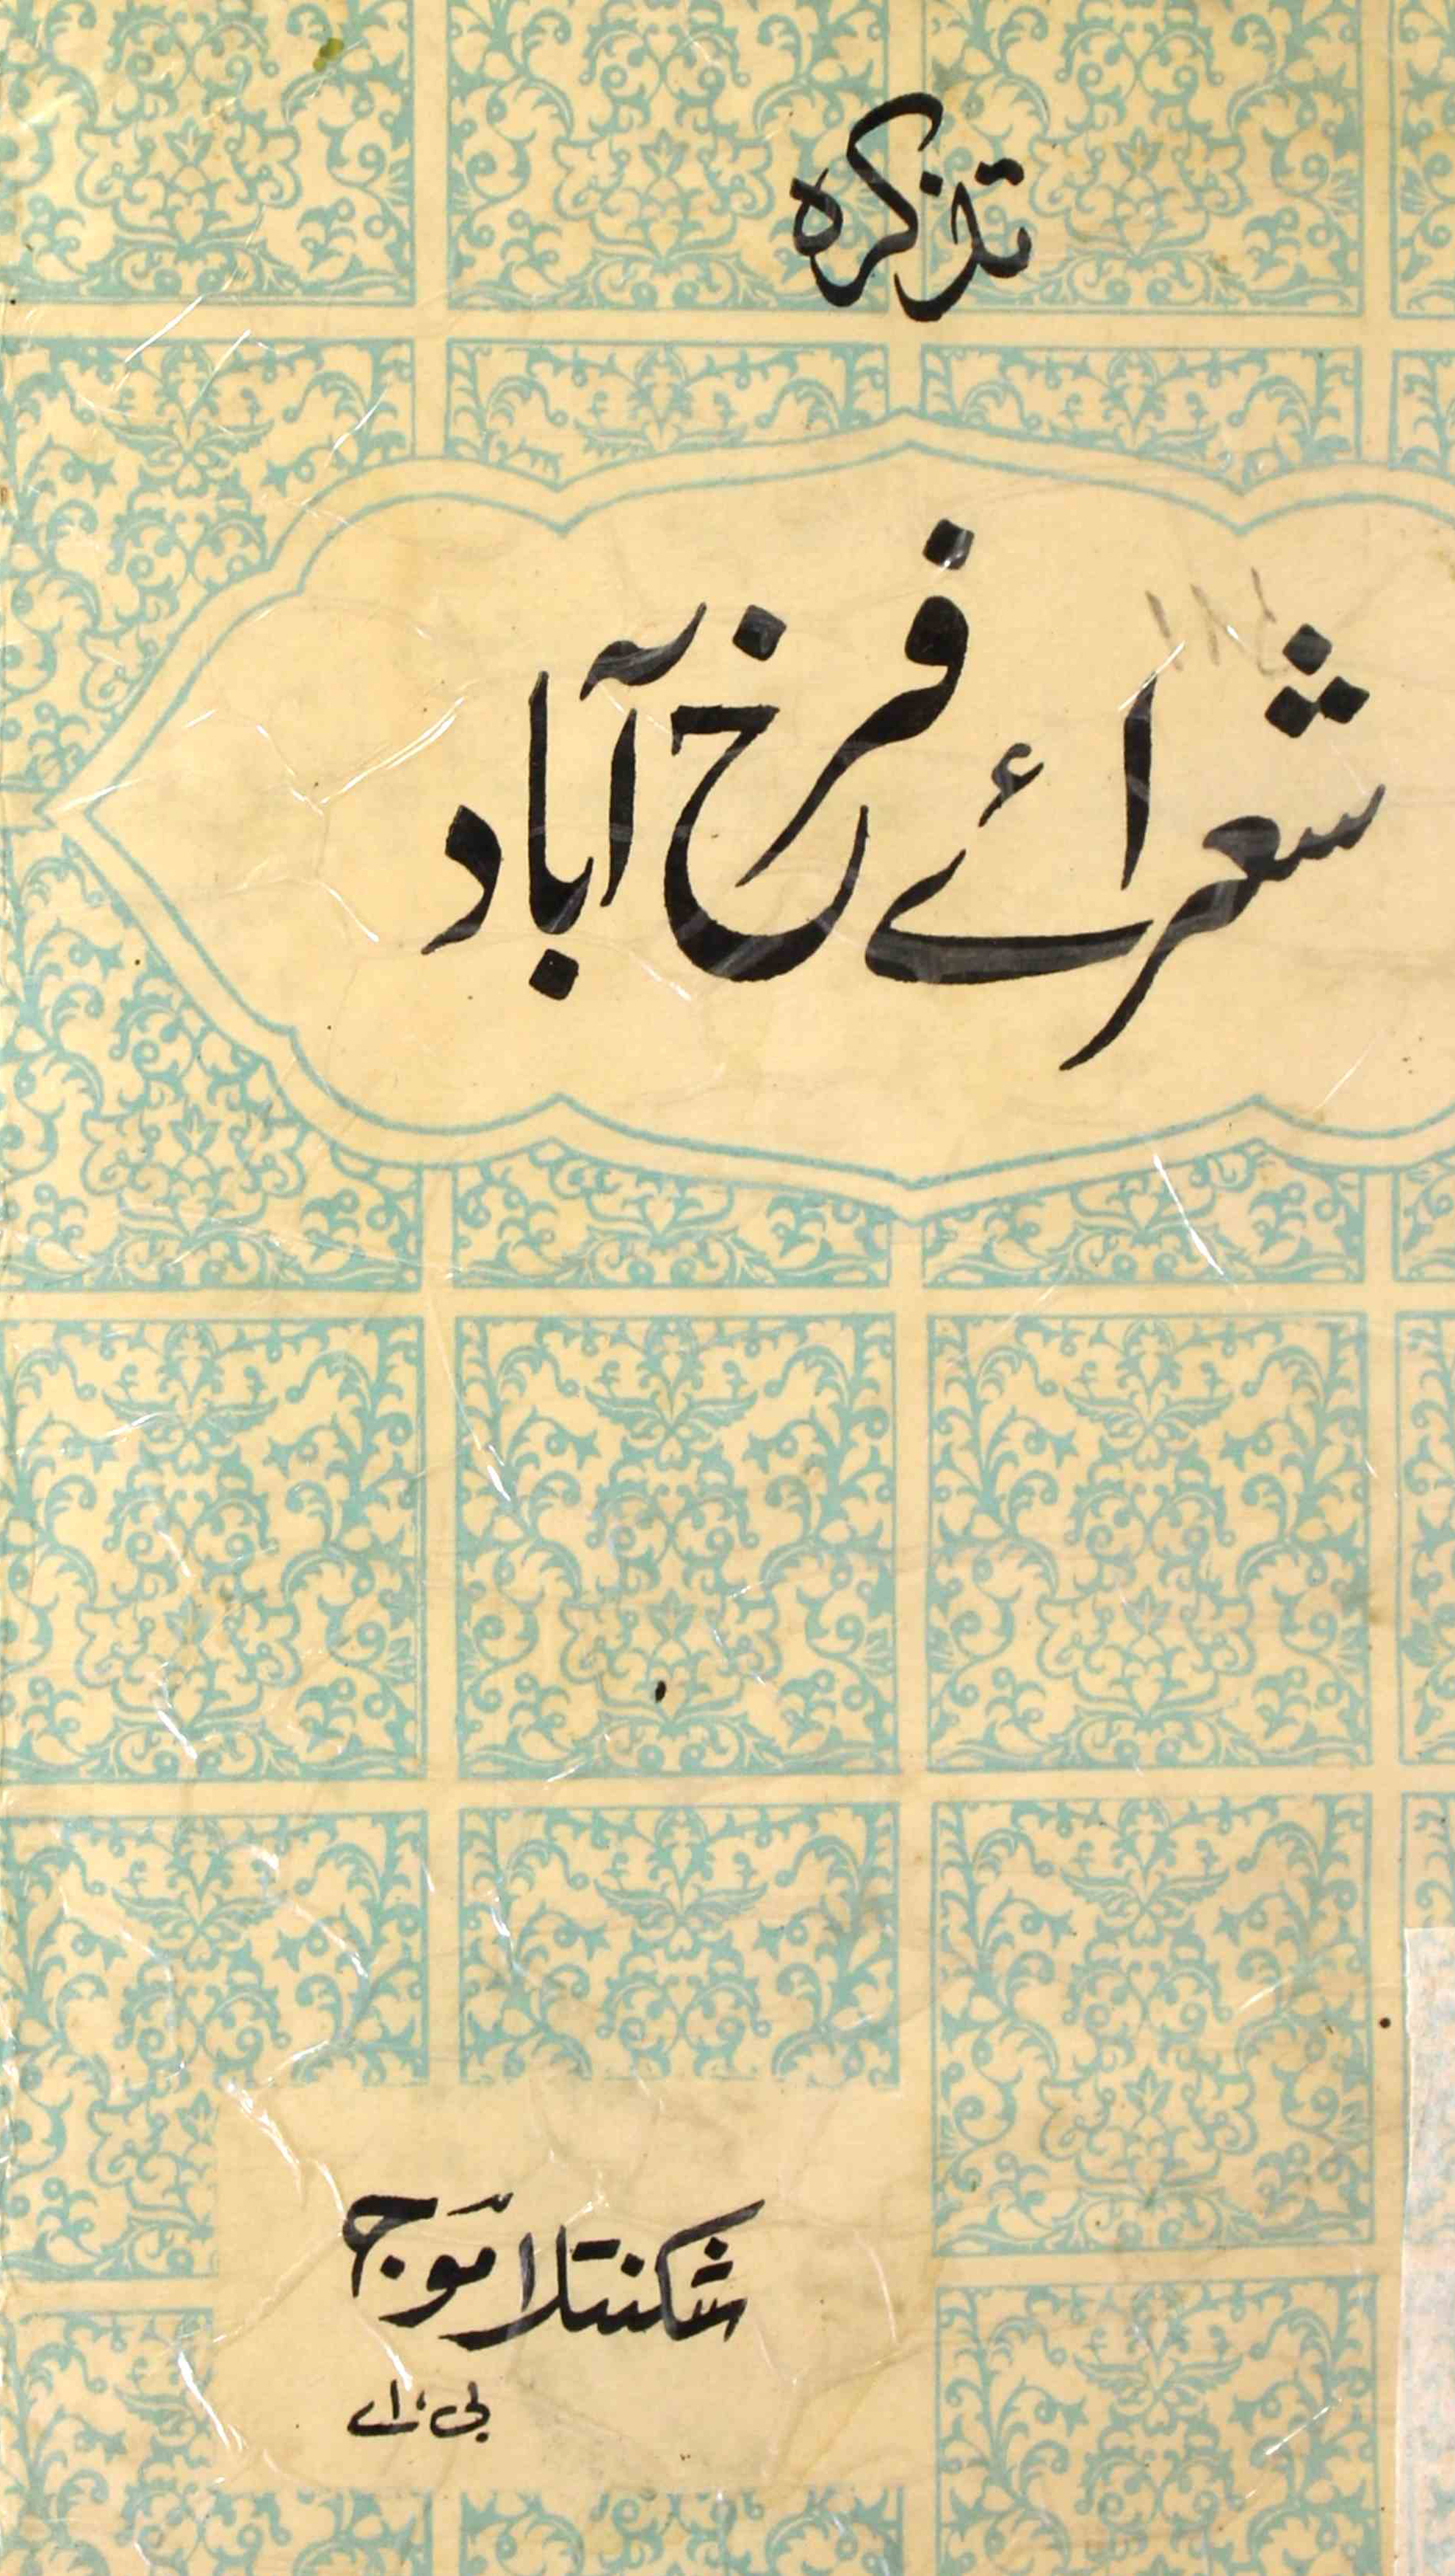 تذکرہ
شعرائے فرخ آباد
شکنتلا موج
بی، اے